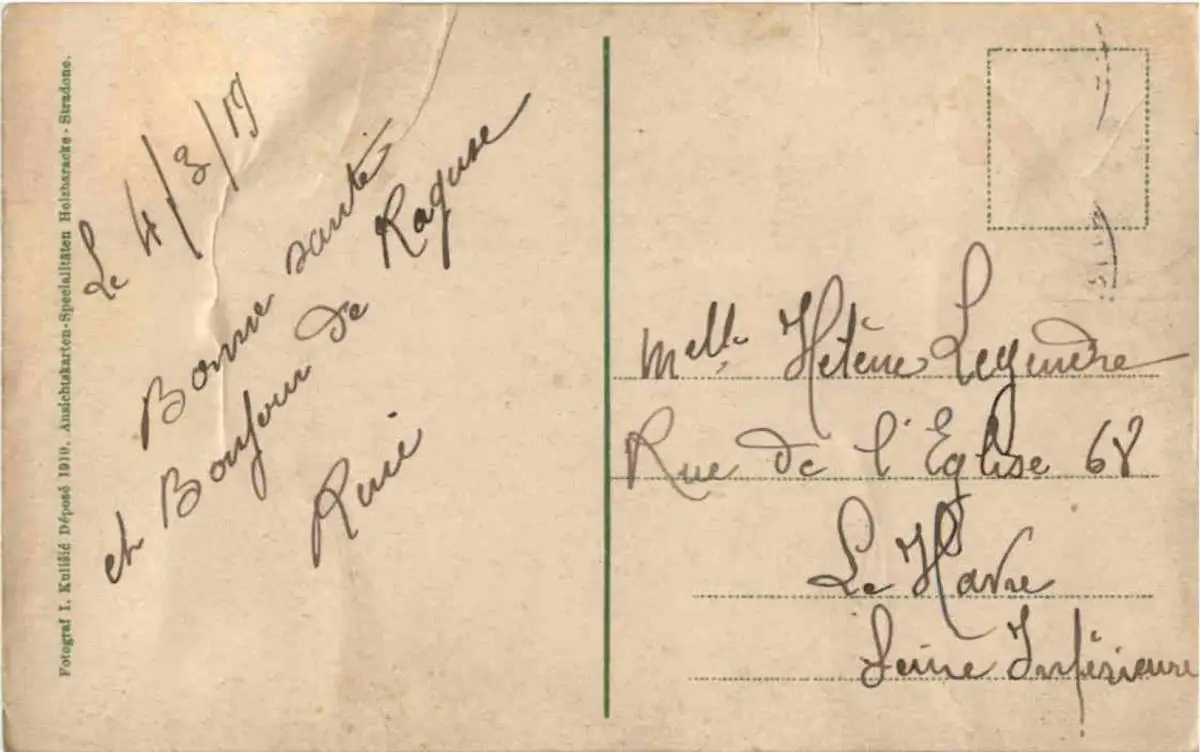 Fotograf I. Kulišić Déposé 1910. Ansichtskarten-Specialitäten Holzbaracke - Stradone.
Le 4/3/19
Bonne santé
et Bonjour de Raguse
René
Melle Hélène Legendre
Rue de l'Eglise 68
Le Havre
Seine Inférieure